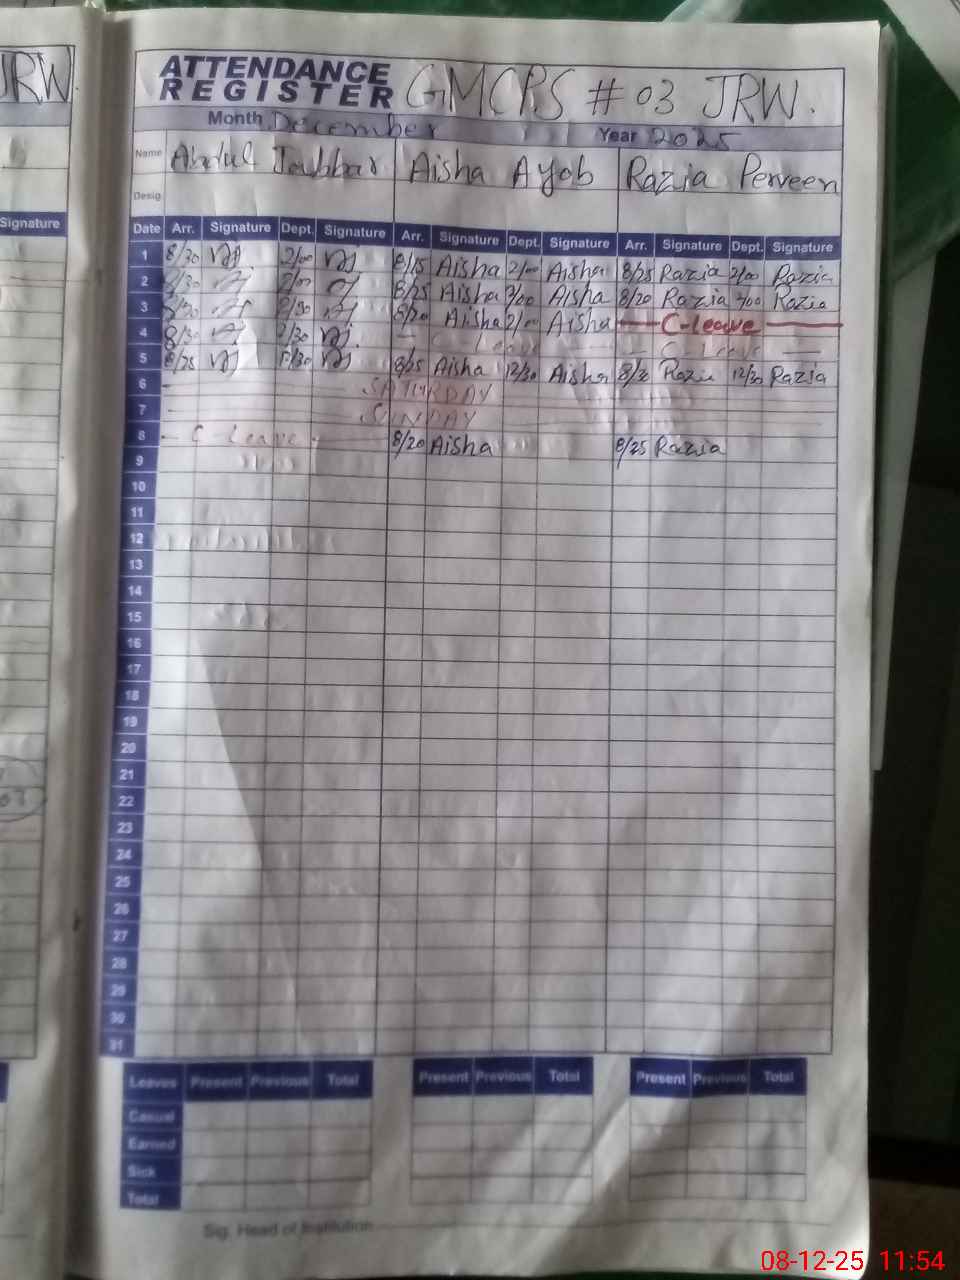 JRW
Signature
ATTENDANCE REGISTER GMCPS # 03 JRW.
Month December Year 2025
Name Abdul Jabbar Aisha Ayob Razia Perveen
Desig
Date Arr. Signature Dept. Signature Arr. Signature Dept. Signature Arr. Signature Dept. Signature
1 8/30 2/00 8/15 Aisha 2/00 Aisha 8/25 Razia 2/00 Razia
2 8/30 2/00 8/25 Aisha 2/00 Aisha 8/20 Razia 2/00 Razia
3 8/30 2/30 8/20 Aisha 2/00 Aisha C-Leave
4 8/30 2/30 C Leave C-Leave
5 8/25 8/25 Aisha 12/30 Aisha 8/30 Razia 12/30 Razia
6 SATURDAY
7 SUNDAY
8 C Leave 8/20 Aisha 8/25 Razia
9
10
11
12
13
14
15
16
17
18
19
20
21
22
23
24
25
26
27
28
29
30
31
Leaves Present Previous Total Present Previous Total Present Previous Total
Casual
Earned
Sick
Total
Sig. Head of Institution
08-12-25 11:54